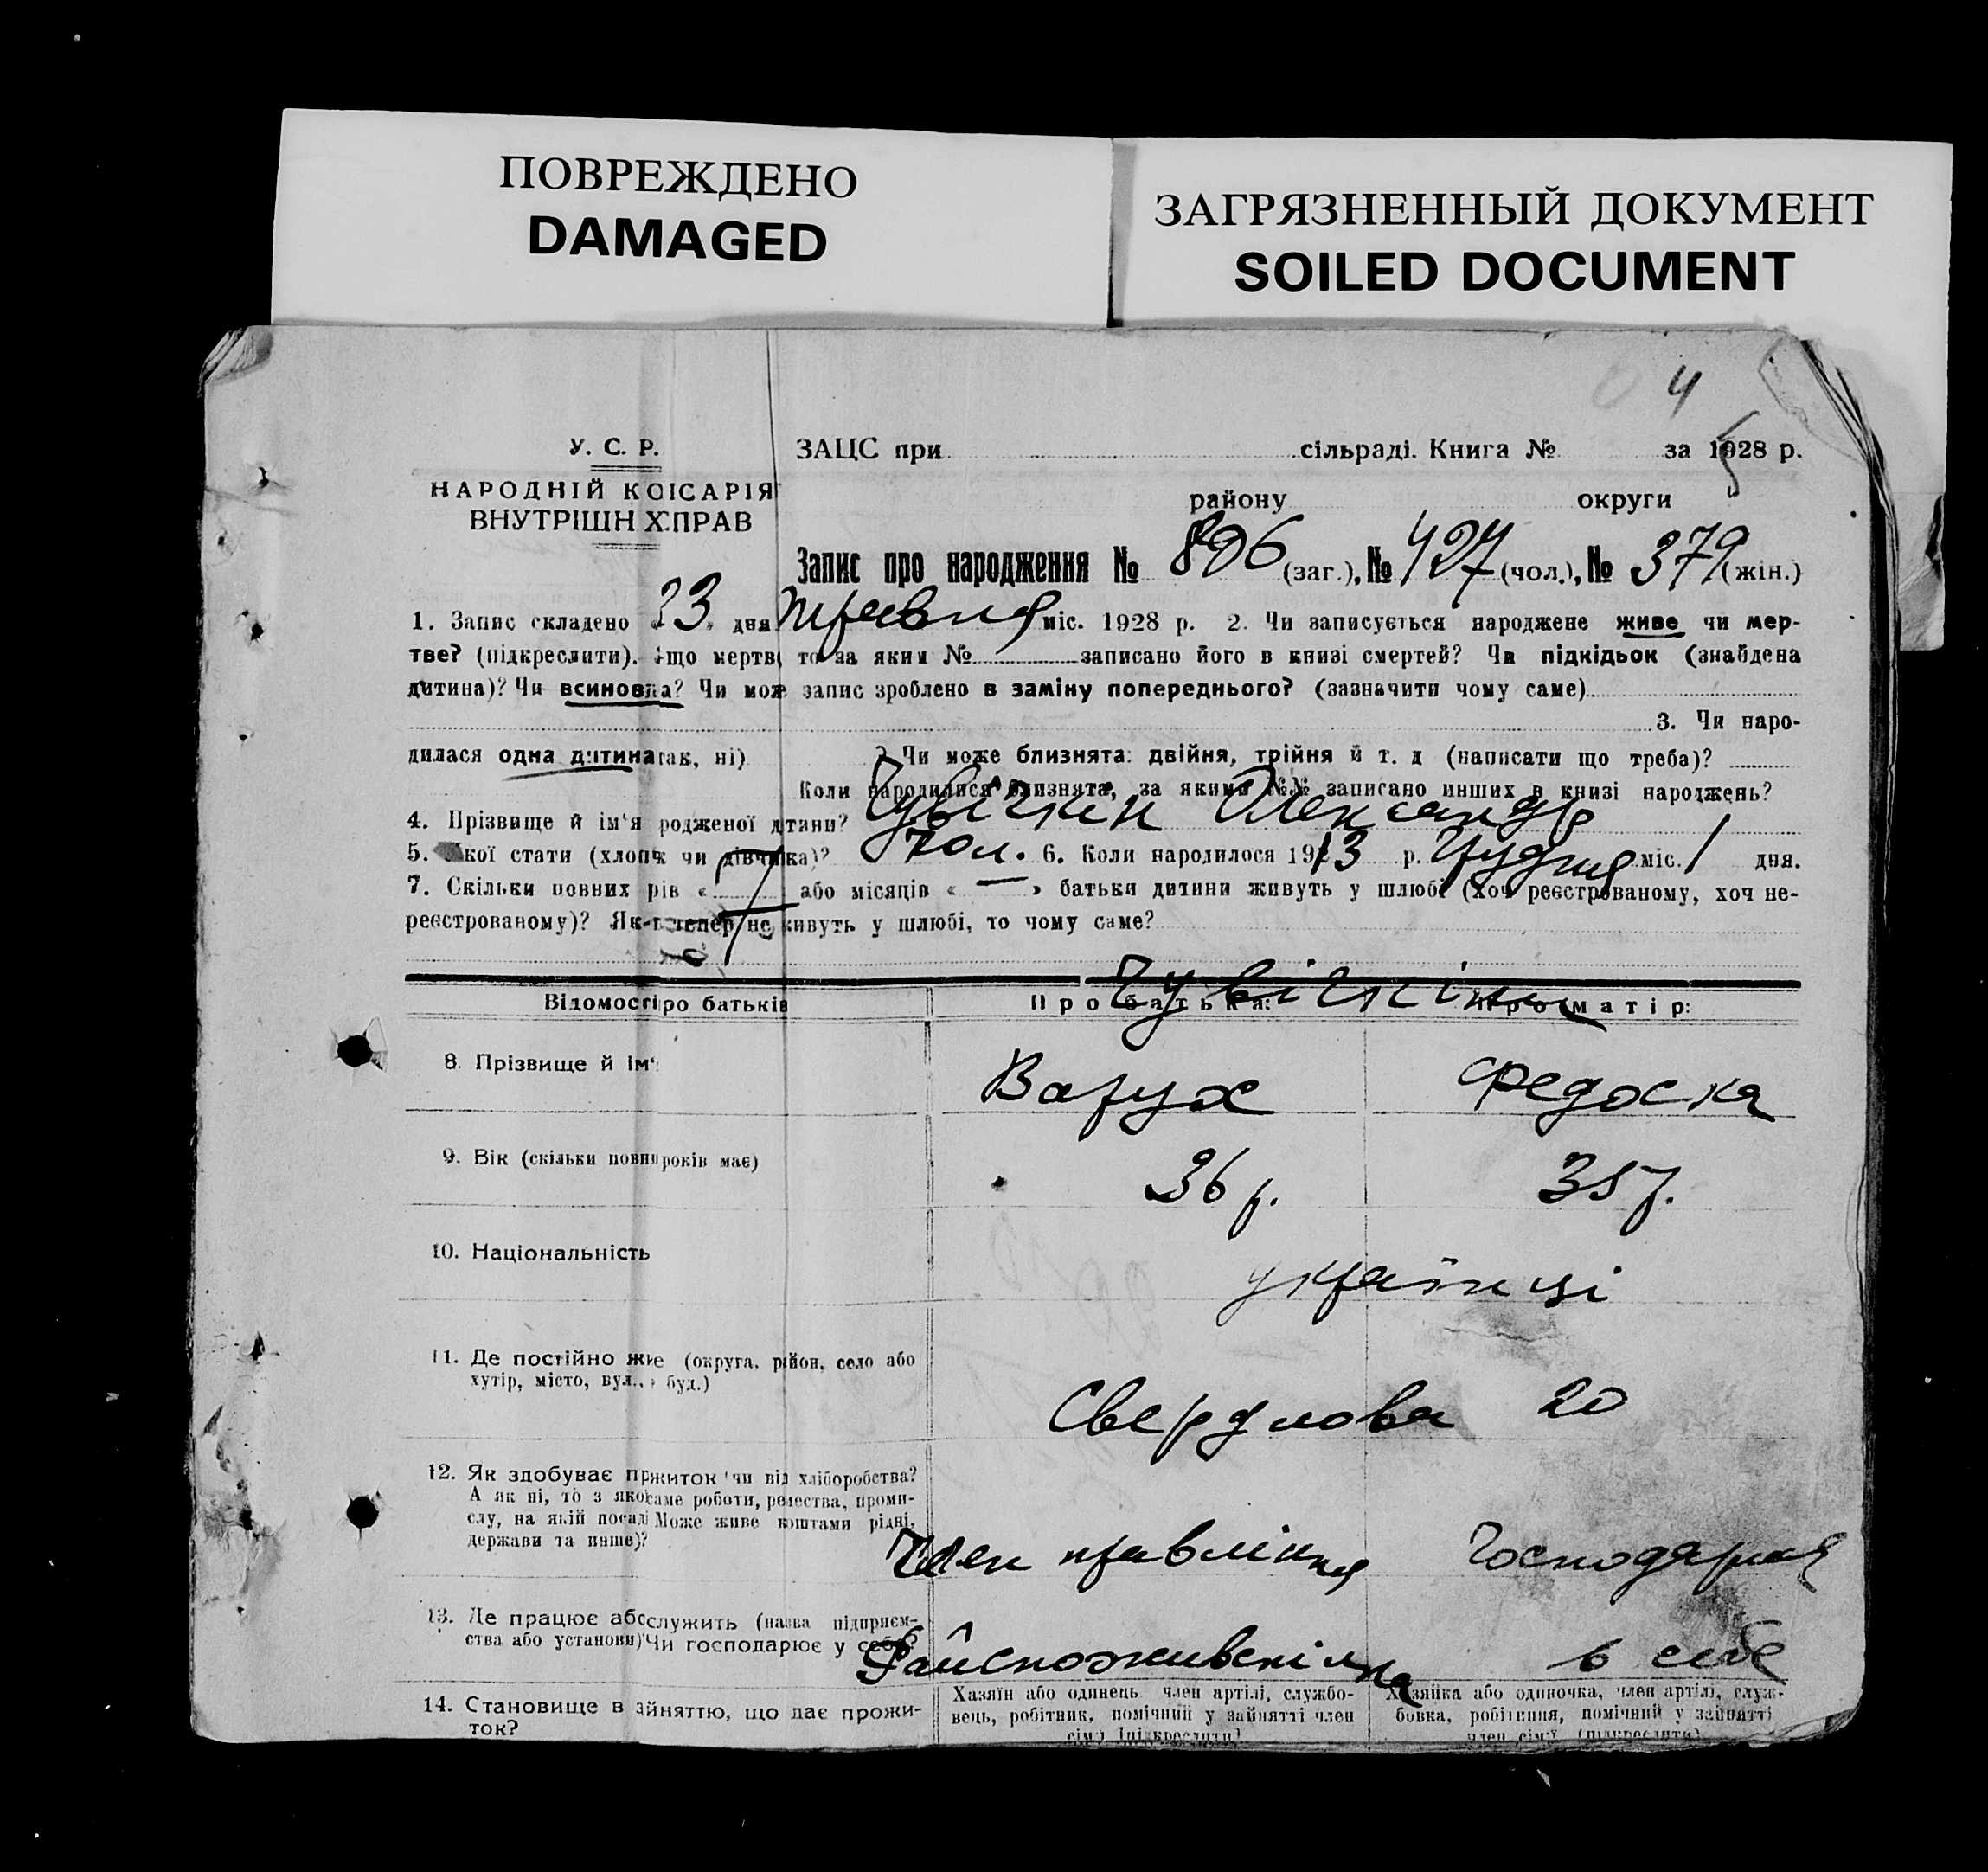 ПОВРЕЖДЕНО
DAMAGED
ЗАГРЯЗНЕННЫЙ ДОКУМЕНТ
SOILED DOCUMENT
4
У. С. Р.
НАРОДНІЙ КОІСАРІЯ
ВНУТРІШН Х ПРАВ
ЗАЦС при сільраді. Книга № за 1928 р.
5
району округи
Запис про народження № 806 (заг.), № 427 (чол.), № 379 (жін.)
1. Запис складено « 23 » дня травня міс. 1928 р. 2. Чи записується народжене живе чи мер-
тве? (підкреслити). що мертв то за яким № записано його в книзі смертей? Чи підкідьок (знайдена
дитина)? Чи всиновна? Чи мож запис зроблено в заміну попереднього? (зазначити чому саме)
3. Чи наро-
дилася одна дитина так, ні) ? Чи може близнята: двійня, трійня й т. д (написати що треба)?
Коли народилися близнята, за якими №№ записано инших в книзі народжень?
4. Прізвище й ім'я родженої дтани? Чувічкин Олександр
5. Якої стати (хлопч чи дівчика)? чол. 6. Коли народилося 1913 р. грудня міс. 1 дня.
7. Скільки повних рів « » або місяців « — » батьки дитини живуть у шлюбі (хоч реєстрованому, хоч не-
реєстрованому)? Як тепер не живуть у шлюбі, то чому саме?
Чувічкіни
Відомості ро батьків Про батька: Про матір:
8. Прізвище й ім' Варух Федоска
9. Вік (скільки повни років має) 36 р. 35 р.
10. Національність українці
11. Де постійно жие (округа, рійон, село або
хутір, місто, вул., буд.)
Свердлова 20
12. Як здобуває пржиток чи від хліборобства?
А як ні, то з якої саме роботи, ремества, проми-
слу, на якій посаді Може живе коштами рідні,
держави та инше)?
Член правління Господарня
13. Де працює або служить (назва підприєм-
ства або установи) Чи господарює у себе?
Райспоживспілка в себе
14. Становище в зйняттю, що дає прожи-
ток?
Хазяїн або одинець член артілі, службо-
вець, робітник, помічний у зайнятті член
сім'ї (підкреслити)
Хазяйка або одиночка, член артілі, служ-
бовка, робітниця, помічний у зайнятті
член сім'ї (підкреслити)